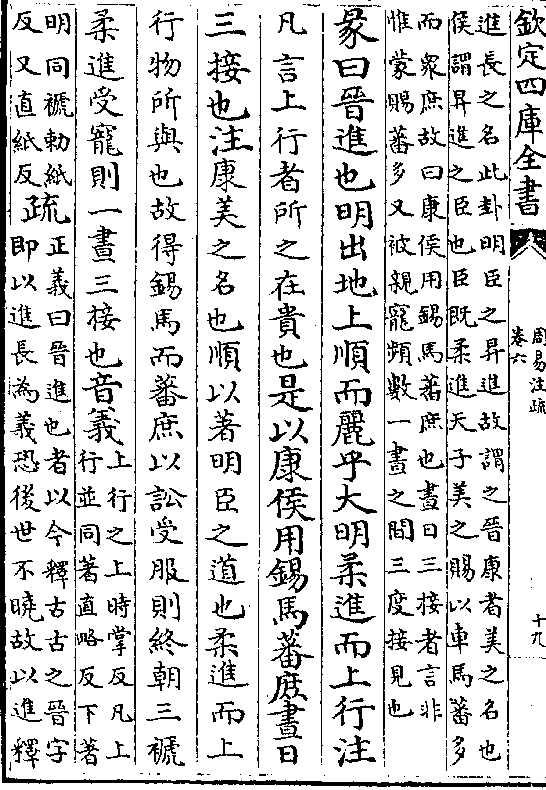 欽定四庫全書
周易注疏
卷六
十九
進長之名此卦明臣之昇進故謂之晉康者美之名也
侯謂昇進之臣也臣既柔進天子美之賜以車馬蕃多
而衆庶故曰康侯用錫馬蕃庶也晝日三接者言非
惟蒙賜蕃多又被親寵頻數一晝之間三度接見也
彖曰晉進也明出地上順而麗乎大明柔進而上行注
凡言上行者所之在貴也是以康侯用錫馬蕃庶晝日
三接也注康美之名也順以著明臣之道也柔進而上
行物所與也故得錫馬而蕃庶以訟受服則終朝三褫
柔進受寵則一晝三接也音義上行之上時掌反凡上
行並同著直略反下著
明同褫勅紙
反又直紙反疏正義曰晉進也者以今釋古古之晉字
即以進長為義恐後世不曉故以進釋